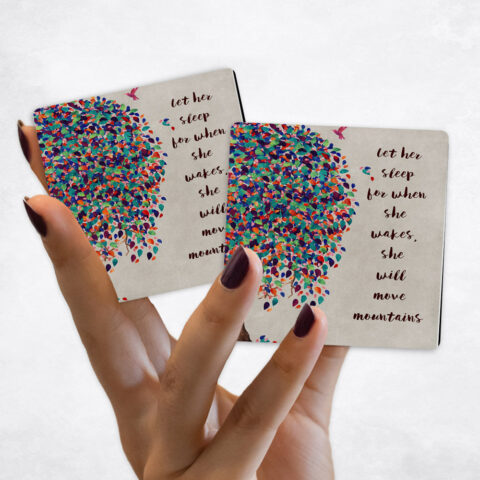 Let her
sleep
for when
she
wakes,
she
will
move
mountains
Let her
sleep
for when
she
wakes,
she
will
move
mountains